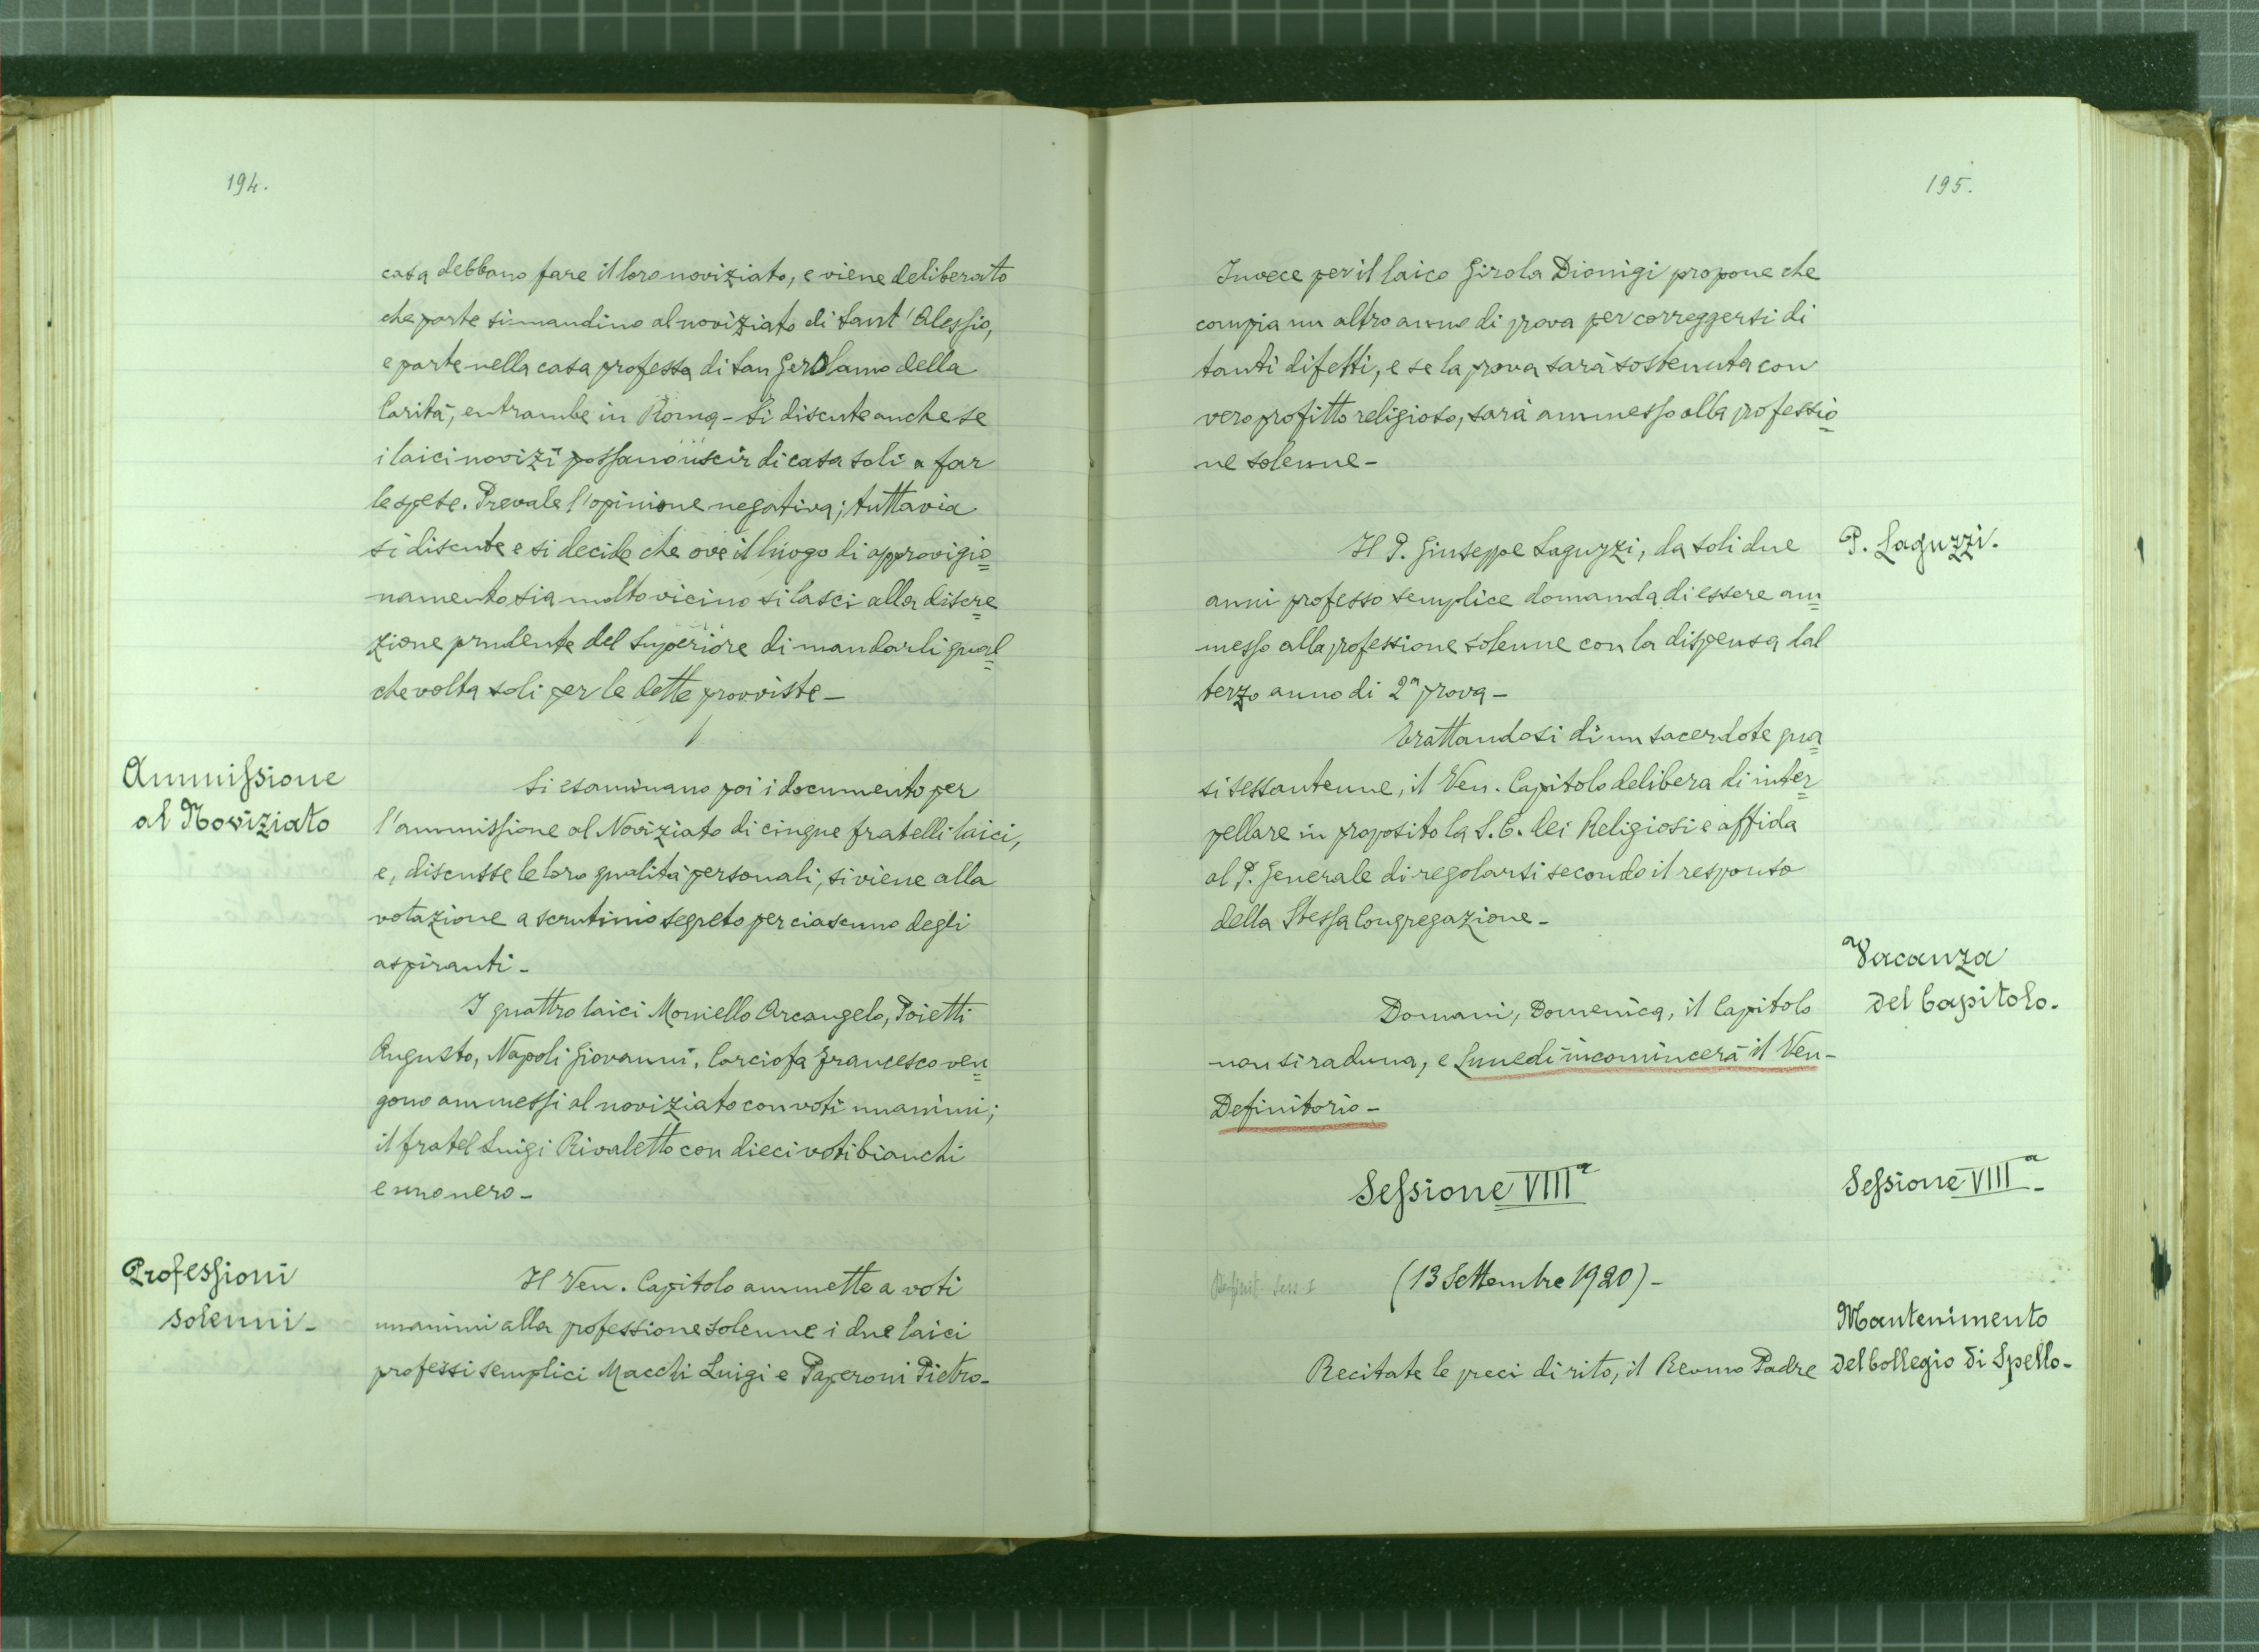 194.
casa debbano fare il loro noviziato, e viene deliberato
che parte si mandino al noviziato di Sant'Alessio,
e parte nella casa professa di San Gerolamo della
Carità, entrambe in Roma - Si discute anche se
i laici novizi possano uscir di casa soli a far
le spese. Prevale l'opinione negativa; tuttavia
si discute e si decide che ove il luogo di approvigio=
namento sia molto vicino si lasci alla discre=
zione prudente del Superiore di mandarli qual=
che volta soli per le dette provviste -
Ammissione
al Noviziato
Si esaminano poi i documento per
l'ammissione al Noviziato di cinque fratelli laici,
e, discusse le loro qualità personali, si viene alla
votazione a scrutinio segreto per ciascuno degli
aspiranti -
I quattro laici Moniello Arcangelo, Poietti
Augusto, Napoli Giovanni, Carciofa Francesco ven=
gono ammessi al noviziato con voti unanimi;
il fratel Luigi Rivaletto con dieci voti bianchi
e uno nero -
Professioni
solenni -
Il Ven. Capitolo ammette a voti
unanimi alla professione solenne i due laici
professi semplici Macchi Luigi e Paperoni Pietro -
195.
Invece per il laico Girola Dionigi propone che
compia un altro anno di prova per correggersi di
tanti difetti, e se la prova sarà sostenuta con
vero profitto religioso, sarà ammesso alla professio=
ne solenne -
P. Laguzzi.
Il P. Giuseppe Laguzzi, da soli due
anni professo semplice domanda di essere am=
messo alla professione solenne con la dispensa dal
terzo anno di 2ª prova -
Trattandosi di un sacerdote qua=
si sessantenne, il Ven. Capitolo delibera di inter=
pellare in proposito la S. C. dei Religiosi e affida
al P. Generale di regolarsi secondo il responso
della Stessa Congregazione -
Vacanza
del Capitolo.
Domani, Domenica, il Capitolo
non si raduna, e Lunedì incomincerà il Ven-
Definitorio -
Sessione VIIIª
Sessione VIIIª -
Definit. Sess I
(13 Settembre 1920) -
Mantenimento
del Collegio di Spello -
Recitate le preci di rito, il Revmo Padre